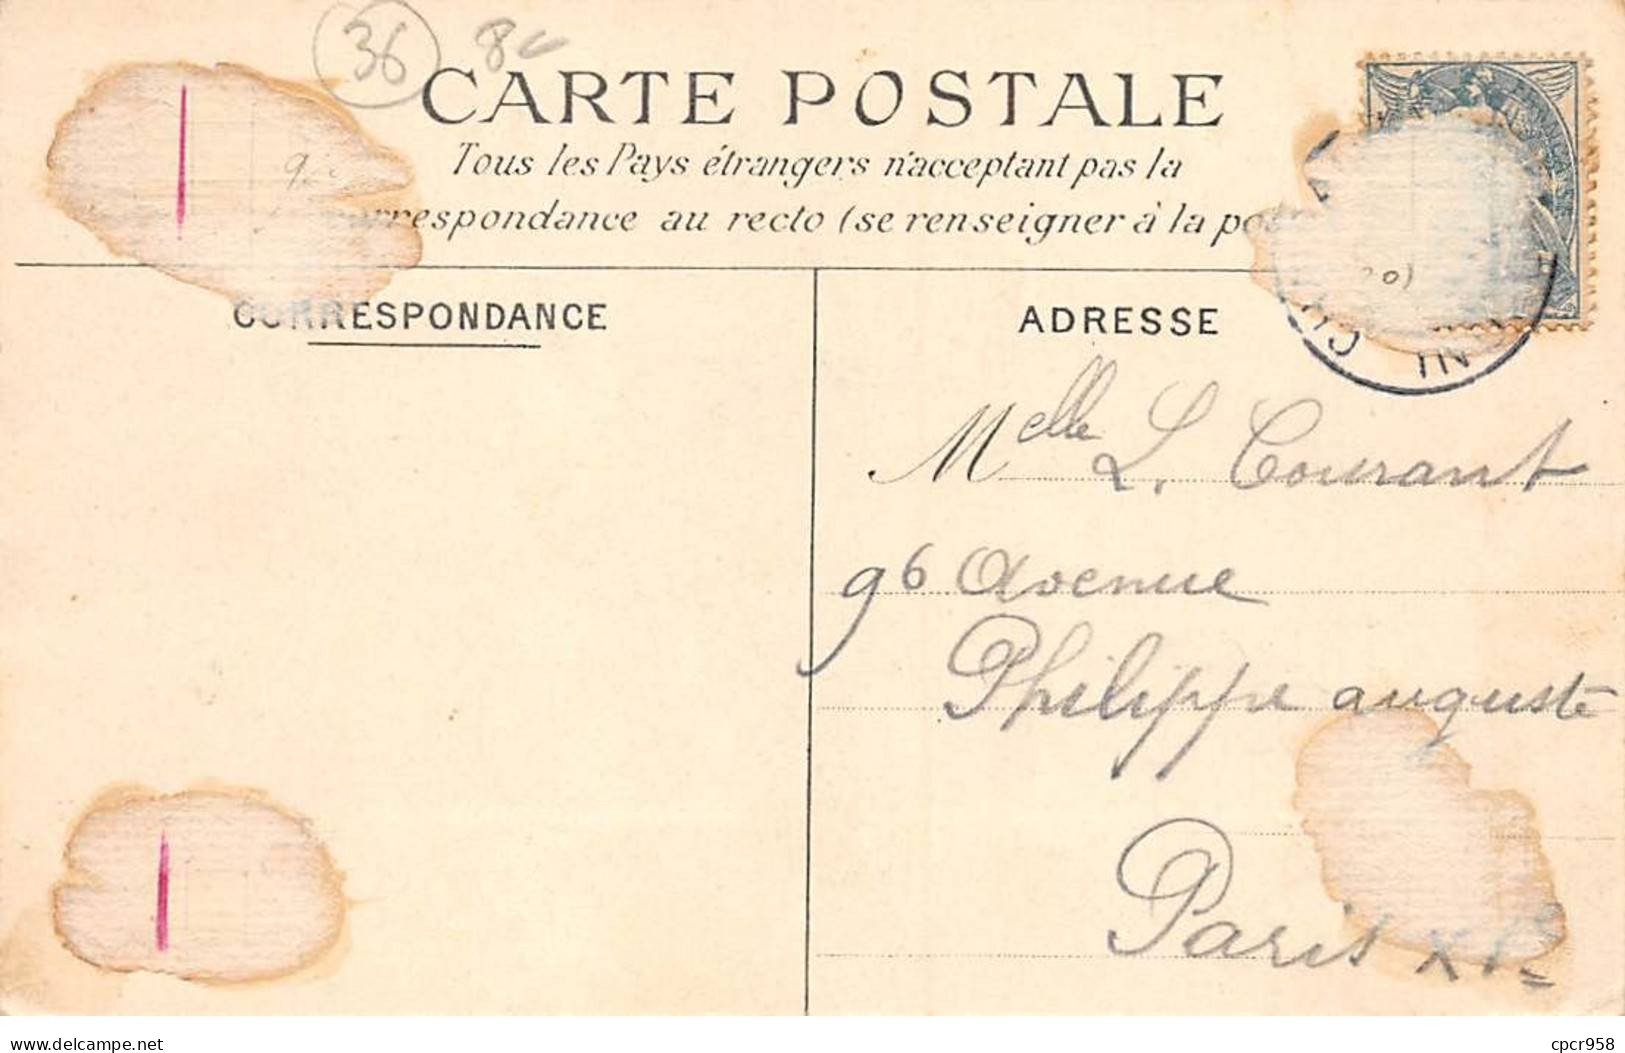 36 8c
CARTE POSTALE
Tous les Pays étrangers n'acceptant pas la
correspondance au recto (se renseigner à la pos
CORRESPONDANCE
ADRESSE
Melle L. Courant
96 Avenue
Philippe auguste
Paris XIe
delcampe.net
cpcr958